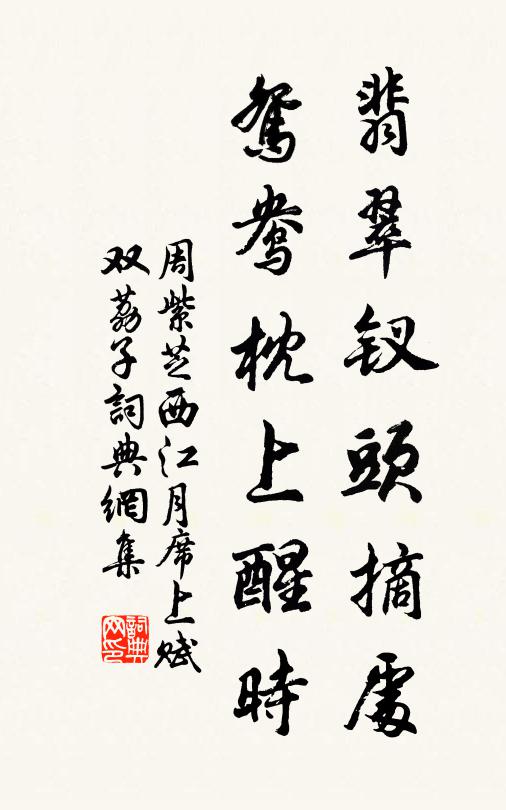 翡翠钗頭摘處
鴛鴦枕上醒時
周紫芝西江月席上赋
双荔子詞典網集
詞典
网印